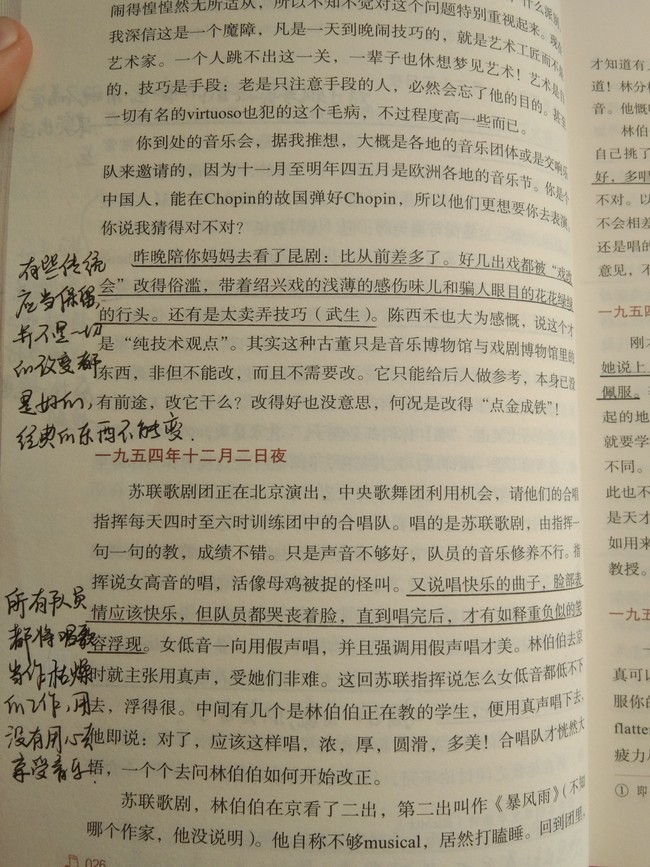 闹得惶惶然无所适从，所以不知不觉对这个问题特别重视起来。现
我深信这是一个魔障，凡是一天到晚闹技巧的，就是艺术工匠而不是
艺术家。一个人跳不出这一关，一辈子也休想梦见艺术！艺术是目
的，技巧是手段：老是只注意手段的人，必然会忘了他的目的。甚至
一切有名的virtuoso也犯的这个毛病，不过程度高一些而已。
你到处的音乐会，据我推想，大概是各地的音乐团体或是交响乐
队来邀请的，因为十一月至明年四五月是欧洲各地的音乐节。你是个
中国人，能在Chopin的故国弹好Chopin，所以他们更想要你去表演。
你说我猜得对不对？
昨晚陪你妈妈去看了昆剧：比从前差多了。好几出戏都被“戏改
会”改得俗滥，带着绍兴戏的浅薄的感伤味儿和骗人眼目的花花绿绿
的行头。还有是太卖弄技巧（武生）。陈西禾也大为感慨，说这个才
是“纯技术观点”。其实这种古董只是音乐博物馆与戏剧博物馆里的
东西，非但不能改，而且不需要改。它只能给后人做参考，本身已没
有前途，改它干么？改得好也没意思，何况是改得“点金成铁”！
有些传统
应当保留，
并不是一切
的改变都
是好的，
经典的东西不能变．
一九五四年十二月二日夜
苏联歌剧团正在北京演出，中央歌舞团利用机会，请他们的合唱
指挥每天四时至六时训练团中的合唱队。唱的是苏联歌剧，由指挥一
句一句的教，成绩不错。只是声音不够好，队员的音乐修养不行。指
挥说女高音的唱，活像母鸡被捉的怪叫。又说唱快乐的曲子，脸部表
情应该快乐，但队员都哭丧着脸，直到唱完后，才有如释重负似的笑
容浮现。女低音一向用假声唱，并且强调用假声唱才美。林伯伯去京
时就主张用真声，受她们非难。这回苏联指挥说怎么女低音都低不下
去，浮得很。中间有几个是林伯伯正在教的学生，便用真声唱下去，
他即说：对了，应该这样唱，浓，厚，圆滑，多美！合唱队才恍然大
悟，一个个去问林伯伯如何开始改正。
所有队员
都将唱歌
当作枯燥
的工作，用
没有用心去
享受音乐．
苏联歌剧，林伯伯在京看了二出，第二出叫作《暴风雨》（不知
哪个作家，他没说明）。他自称不够musical，居然打瞌睡。回到团里，
026
才知道有
道！林分析
音。他慨
林伯
自己挑了
好，多唱
不对。以
不会相差
还是唱的
意见，不
一九五四
刚才
她说上
佩服。
起的地
就要学
不同。
此也不
是天才
如用来
教授。
一九五
真可以
服你的
flatter
疲力
① 即